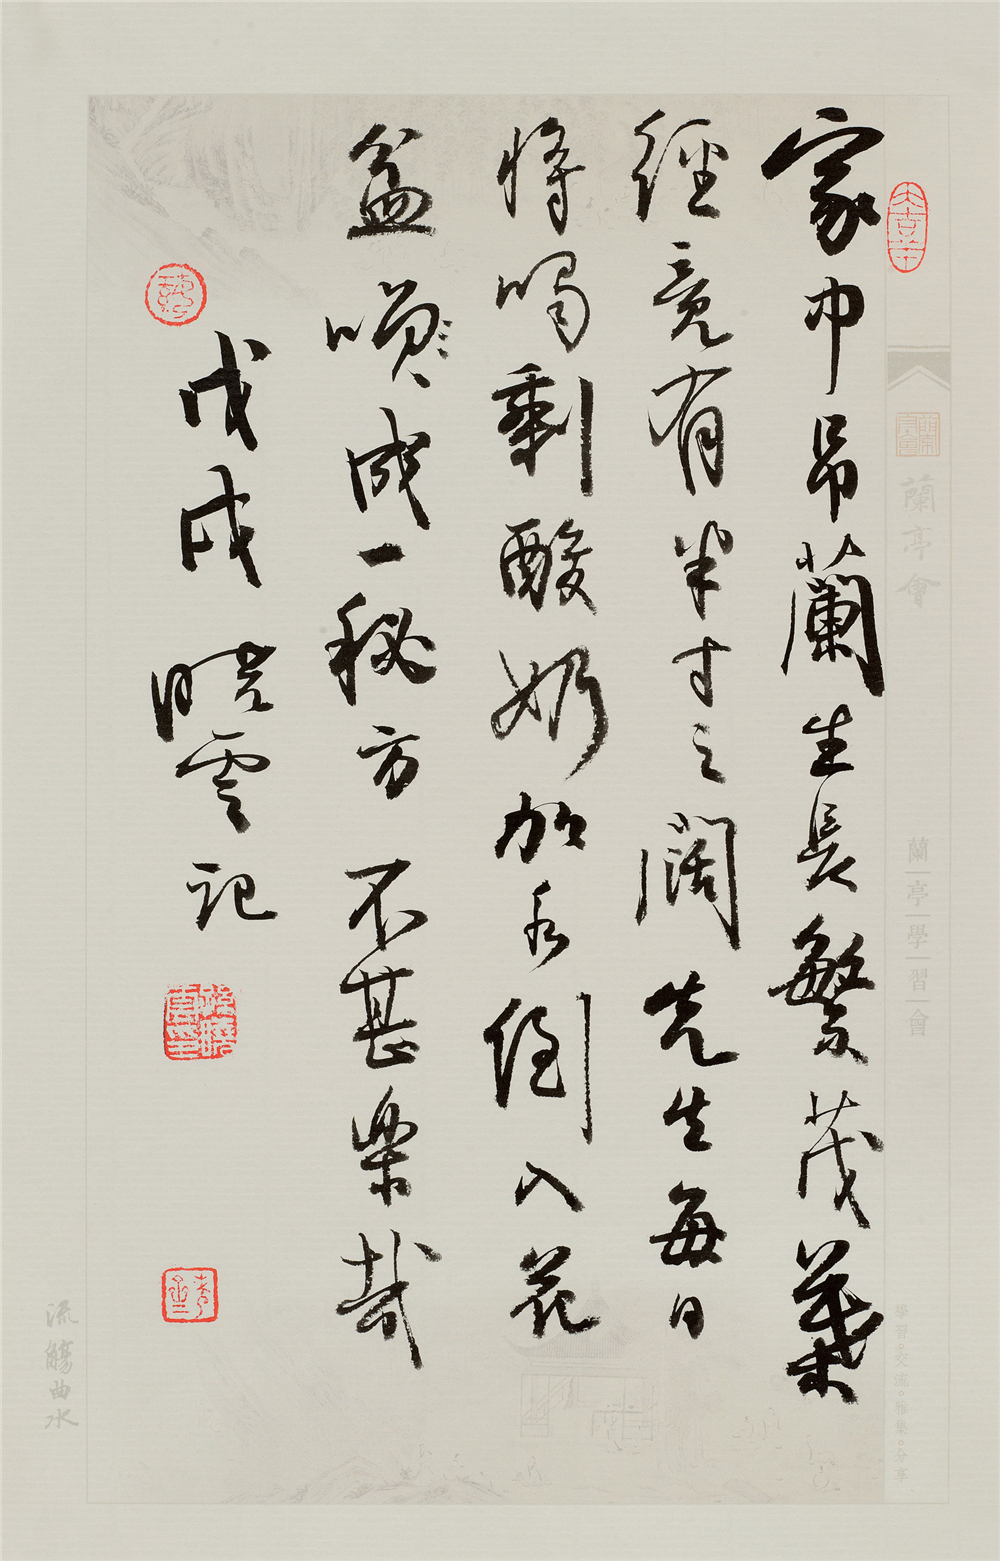 大吉羊
家中吊蘭生長繁茂葉
經竟有半寸之闊先生每日
將喝剩酸奶加水倒入花
盆成一秘方不甚樂哉
戊戌 曉雲記
蘭亭會
蘭|亭|學|習|會
學習○交流○雅集○分享
流觴曲水